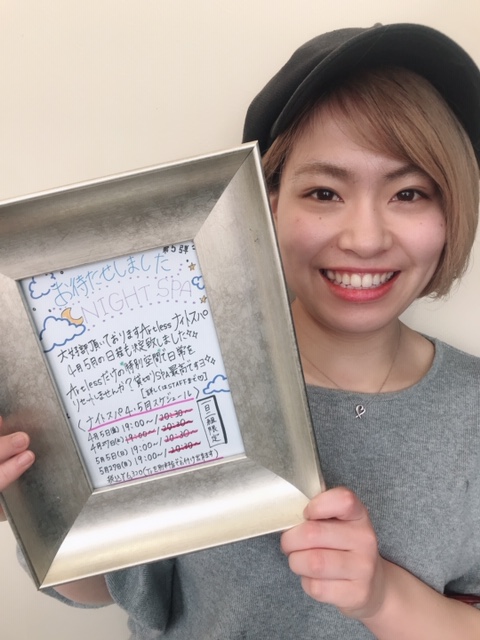 第5弾
お待たせしました
NIGHT SPA
大好評頂いております Aireless ナイトスパ
4月5月の日程も決定致しました
Airelessだけの特別空間で日常を
リセットしませんか? SPA最高ですヨ
【詳しくはSTAFFまで】
〈ナイトスパ4・5月スケジュール〉
4月5日(金) 19:00〜/20:30〜
19:00〜/20:30〜
5月5日(日) 19:00〜/20:30〜
19:00〜/20:30〜
日一組限定